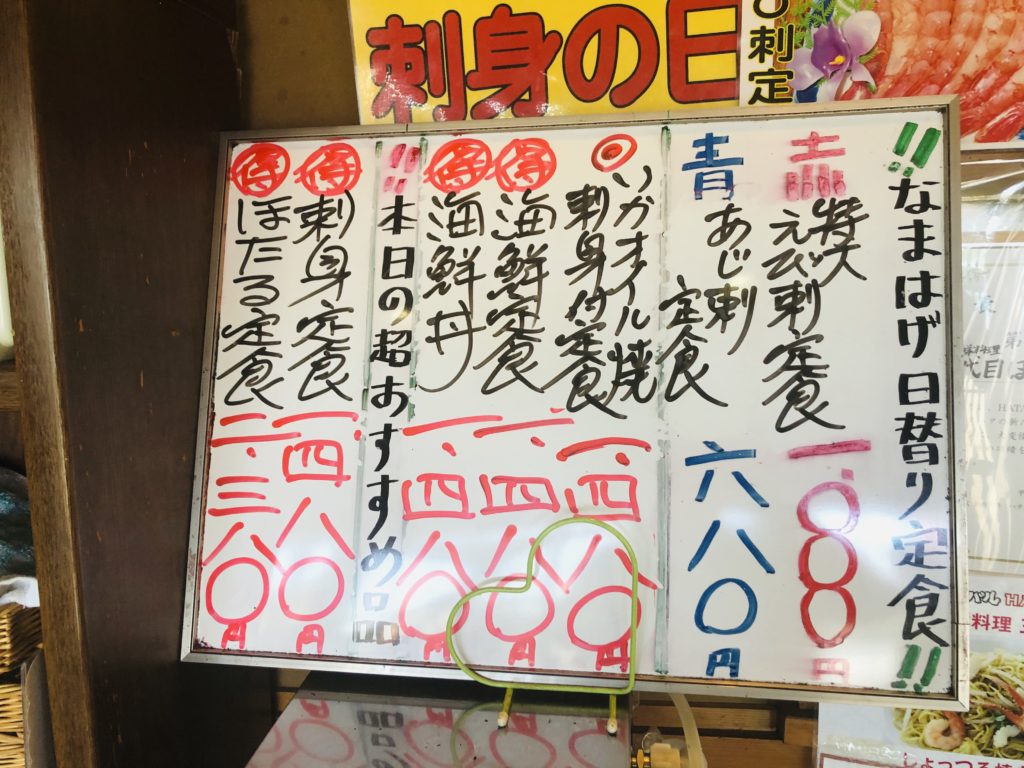 刺身の日
刺定
!!なまはげ日替り定食!!
赤 特大
えび刺定食 一.〇〇〇円
青 あじ刺
定食 六八〇円
◎いかオイル焼
刺身付定食 一.四八〇円
得 海鮮定食 一.四八〇円
得 海鮮丼 一.四八〇円
!!本日の超おすすめ品
得 刺身定食 一.四八〇円
得 ほたる定食 一.三八〇円
代目
料理
しょっつる焼